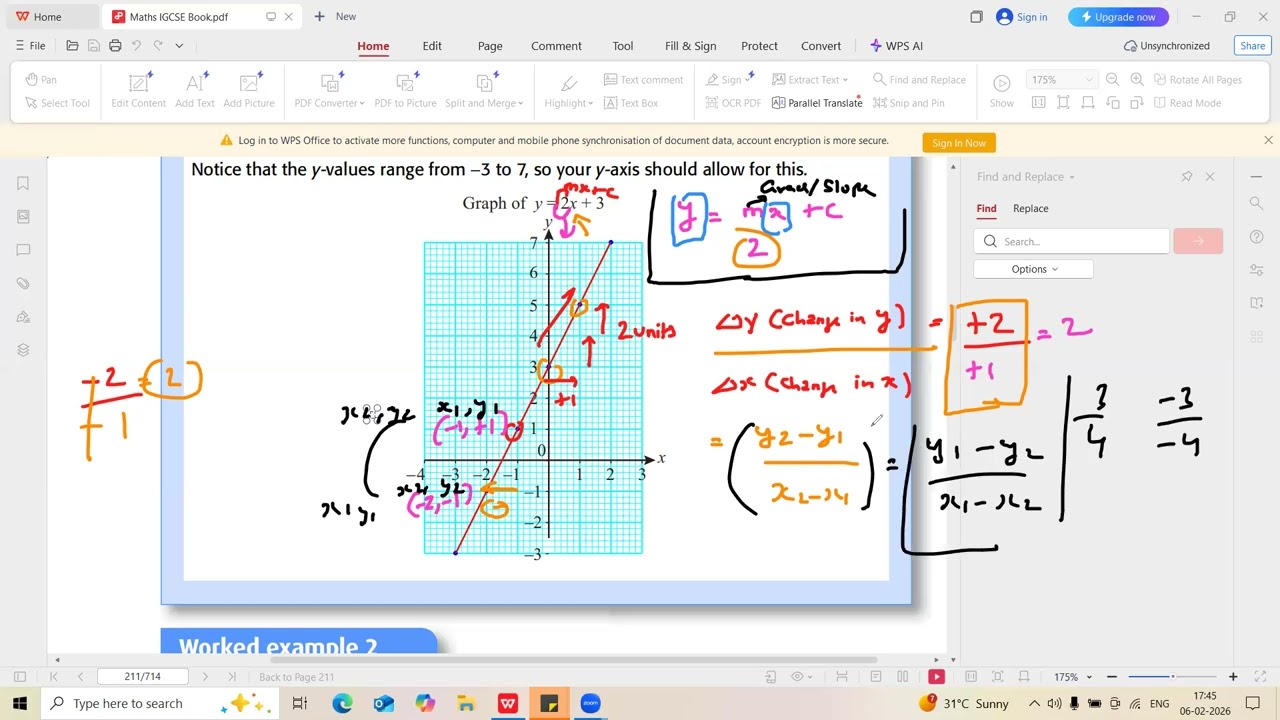 Home
Maths IGCSE Book.pdf
New
Sign in
Upgrade now
File
Home Edit Page Comment Tool Fill & Sign Protect Convert WPS AI
Unsynchronized
Share
Pan
Select Tool
Edit Content
Add Text
Add Picture
PDF Converter
PDF to Picture
Split and Merge
Highlight
Text comment
Text Box
Sign
OCR PDF
Extract Text
Parallel Translate
Find and Replace
Snip and Pin
Show
175%
Rotate All Pages
Read Mode
Log in to WPS Office to activate more functions, computer and mobile phone synchronisation of document data, account encryption is more secure.
Sign In Now
Notice that the y-values range from −3 to 7, so your y-axis should allow for this.
Find and Replace
Find Replace
Search...
Options
mx+c
Graph of y = 2x + 3
Grad/Slope
y = mx + c
2
y
7
6
5
4
3
2
1
0
x
−4 −3 −2 −1 1 2 3
−1
−2
−3
2 units
+1
Δy (change in y) = +2 = 2
Δx (change in x) +1
-2 = 2
-1
x2, y2
x1, y1
(-1, +1)
x2, y2
(-2, -1)
x1 y1
= (y2 - y1) = y1 - y2
x2 - x1 x1 - x2
3 -3
4 -4
Worked example 2
211/714
Back to Page 211
175%
Type here to search
7
31°C Sunny
ENG
17:45
06-02-2026